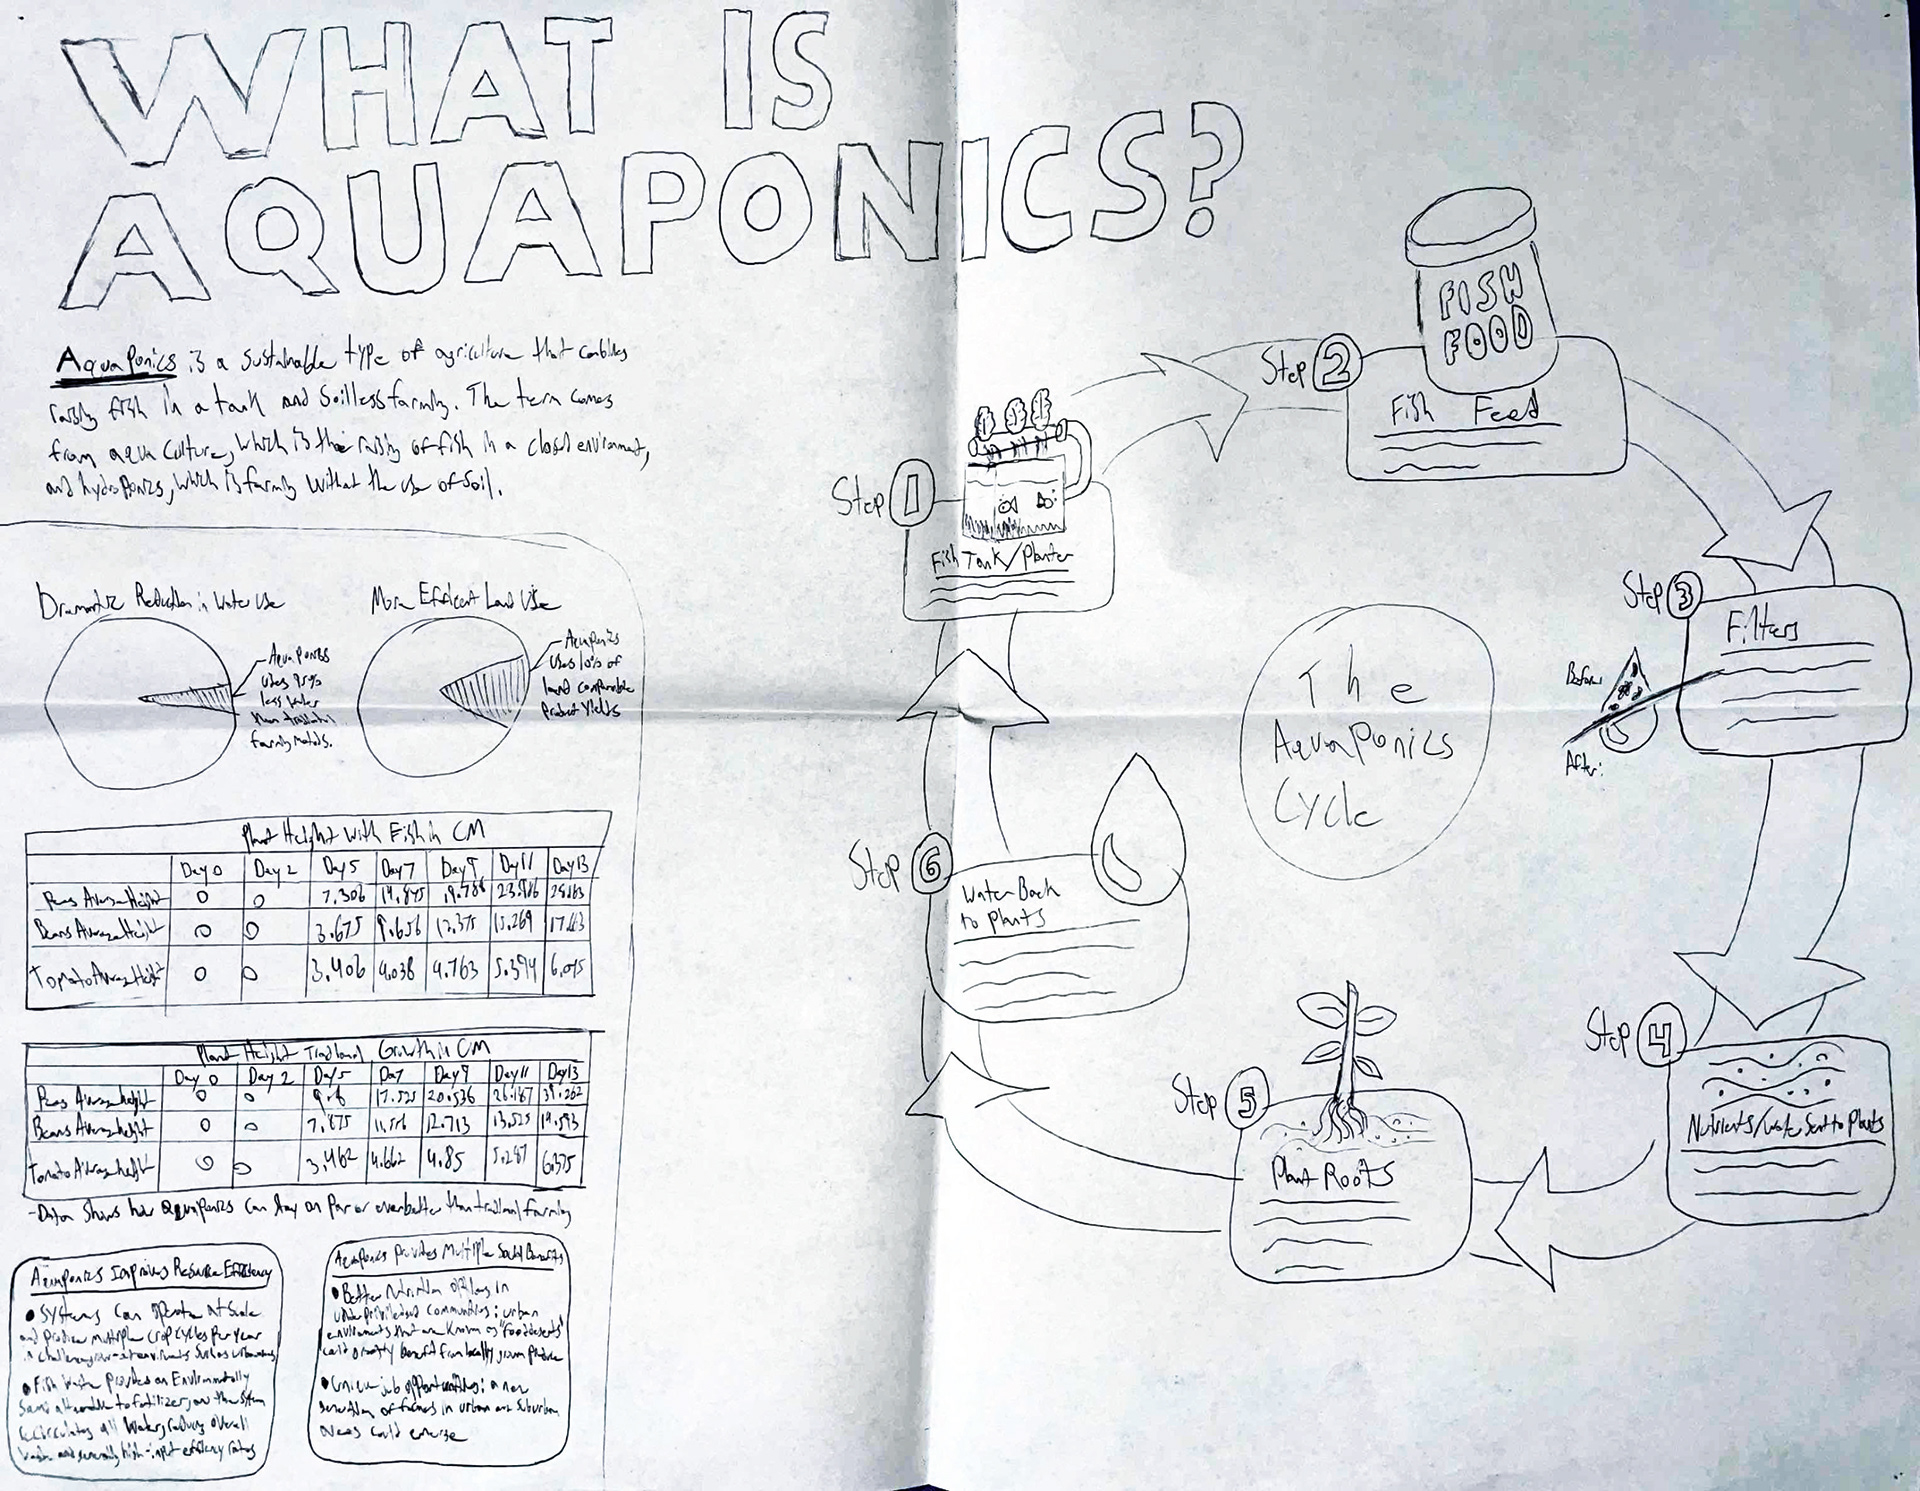 WHAT IS
AQUAPONICS?
AquaPonics is a sustainable type of agriculture that combines
raising fish in a tank and soilless farming. The term comes
from aqua culture, which is the raising of fish in a closed environment,
and hydroponics, which is farming without the use of soil.
Dramatic Reduction in Water Use
Aquaponics
uses 95%
less water
than traditional
farming methods.
More Efficient Land Use
Aquaponics
uses 10% of
land comparable
product yields
Plant Height With Fish in CM
Day 0 Day 2 Day 5 Day 7 Day 9 Day 11 Day 13
Peas Average Height 0 0 7.306
Beans Average Height 0 0 3.675 9.656 12.375 15.269
Tomato Average Height 0 0 3.406 4.038 4.763 5.394 6.075
Plant Height Traditional Growth in CM
Day 0 Day 2 Day 5 Day 7 Day 9 Day 11 Day 13
Peas Average height 0 0 17.525 20.536
Beans Average height 0 0 7.875 12.713 13.525
Tomato Average height 0 0 3.462 4.662 4.85 6.375
-Data shows how aquaponics can stay on par or even better than traditional farming
Aquaponics Improves Resource Efficiency
• Systems can operate at scale
and produce multiple crop cycles per year
in environments such as
• Fish waste provides an Environmentally
to fertilizer, and the system
recirculates all water, reducing overall
waste and generally high-input efficiency rates
Aquaponics Provides Multiple Social Benefits
• Better nutrition options in
underprivileged communities: urban
environments that are known as "food deserts"
could greatly benefit from locally grown produce
• Unique job opportunities: a new
generation of farmers in urban and suburban
areas could emerge
The
Aquaponics
Cycle
Step 1
Fish Tank/Planter
Step 2
FISH
FOOD
Fish Feed
Step 3
Filters
Before:
After:
Step 4
Nutrients/Water Sent to Plants
Step 5
Plant Roots
Step 6
Water Back
to plants